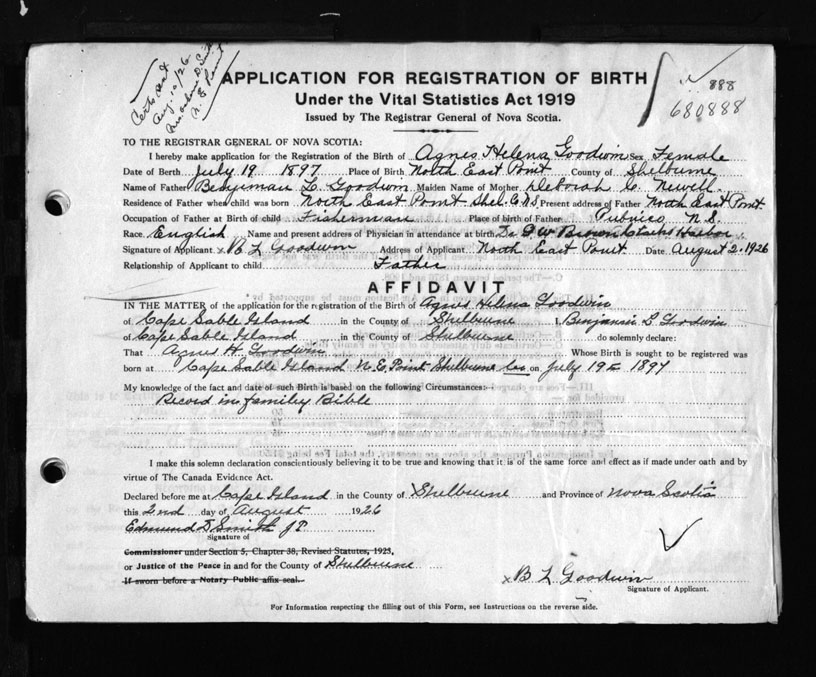 Cert sent
Aug. 10/26
N. E. Point
888
680888
APPLICATION FOR REGISTRATION OF BIRTH
Under the Vital Statistics Act 1919
Issued by The Registrar General of Nova Scotia.
TO THE REGISTRAR GENERAL OF NOVA SCOTIA:
I hereby make application for the Registration of the Birth of Agnes Helena Goodwin Sex Female
Date of Birth July 19 1897 Place of Birth North East Point County of Shelbourne
Name of Father Benjiman L. Goodwin Maiden Name of Mother Deborah C. Newell
Residence of Father when child was born North East Point Shel. Co N S Present address of Father North East Point
Occupation of Father at Birth of child Fisherman Place of birth of Father Pubnico, N. S.
Race English Name and present address of Physician in attendance at birth Dr I W Brown Clarks Harbor
Signature of Applicant x B L Goodwin Address of Applicant North East Point Date August 2. 1926
Relationship of Applicant to child Father
AFFIDAVIT
IN THE MATTER of the application for the registration of the Birth of Agnes Helena Goodwin
of Cape Sable Island in the County of Shelburne I, Benjamin L Goodwin
of Cape Sable Island in the County of Shelburne do solemnly declare:
That Agnes H. Goodwin Whose Birth is sought to be registered was
born at Cape Sable Island N. E. Point Shelburne Co on July 19th 1897
My knowledge of the fact and date of such Birth is based on the following Circumstances:
Record in familey Bible
I make this solemn declaration conscientiously believing it to be true and knowing that it is of the same force and effect as if made under oath and by
virtue of The Canada Evidence Act.
Declared before me at Cape Island in the County of Shelburne and Province of Nova Scotia
this 2nd day of August 1926
Edmund D Smith J P.
Signature of
Commissioner under Section 5, Chapter 38, Revised Statutes, 1923,
or Justice of the Peace in and for the County of Shelburne
If sworn before a Notary Public affix seal.
x B L Goodwin
Signature of Applicant.
For Information respecting the filling out of this Form, see Instructions on the reverse side.